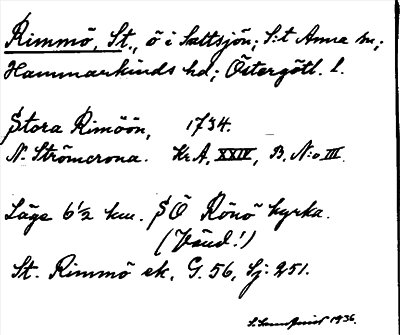 Rimmö, St., ö i Saltsjön; S:t Anna sn;
Hammarkinds hd; Östergötl. l.
Stora Rimöön, 1734.
N. Strömcrona. Kr.A. XXIV, B. N:o III.
Läge 6½ km. SÖ Rönö kyrka.
(Vänd!)
St. Rimmö ek. G. 56, Sj: 251.
1936.